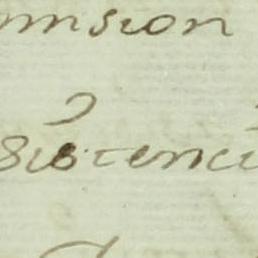 omsion
sistenci